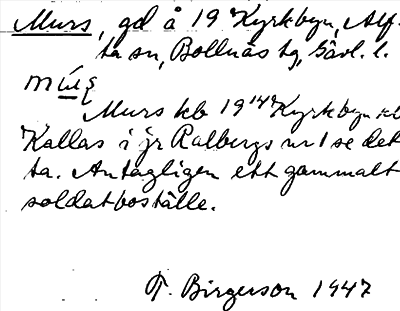 Murs, gd å 19 Kyrkbyn, Alf-
ta sn, Bollnäs tg, Gävl. l.
Murs kb 19 Kyrkbyn kb
Kallas i jr Ralbergs nr 1 se det-
ta. Antagligen ett gammalt
soldatboställe.
T. Birgerson 1947